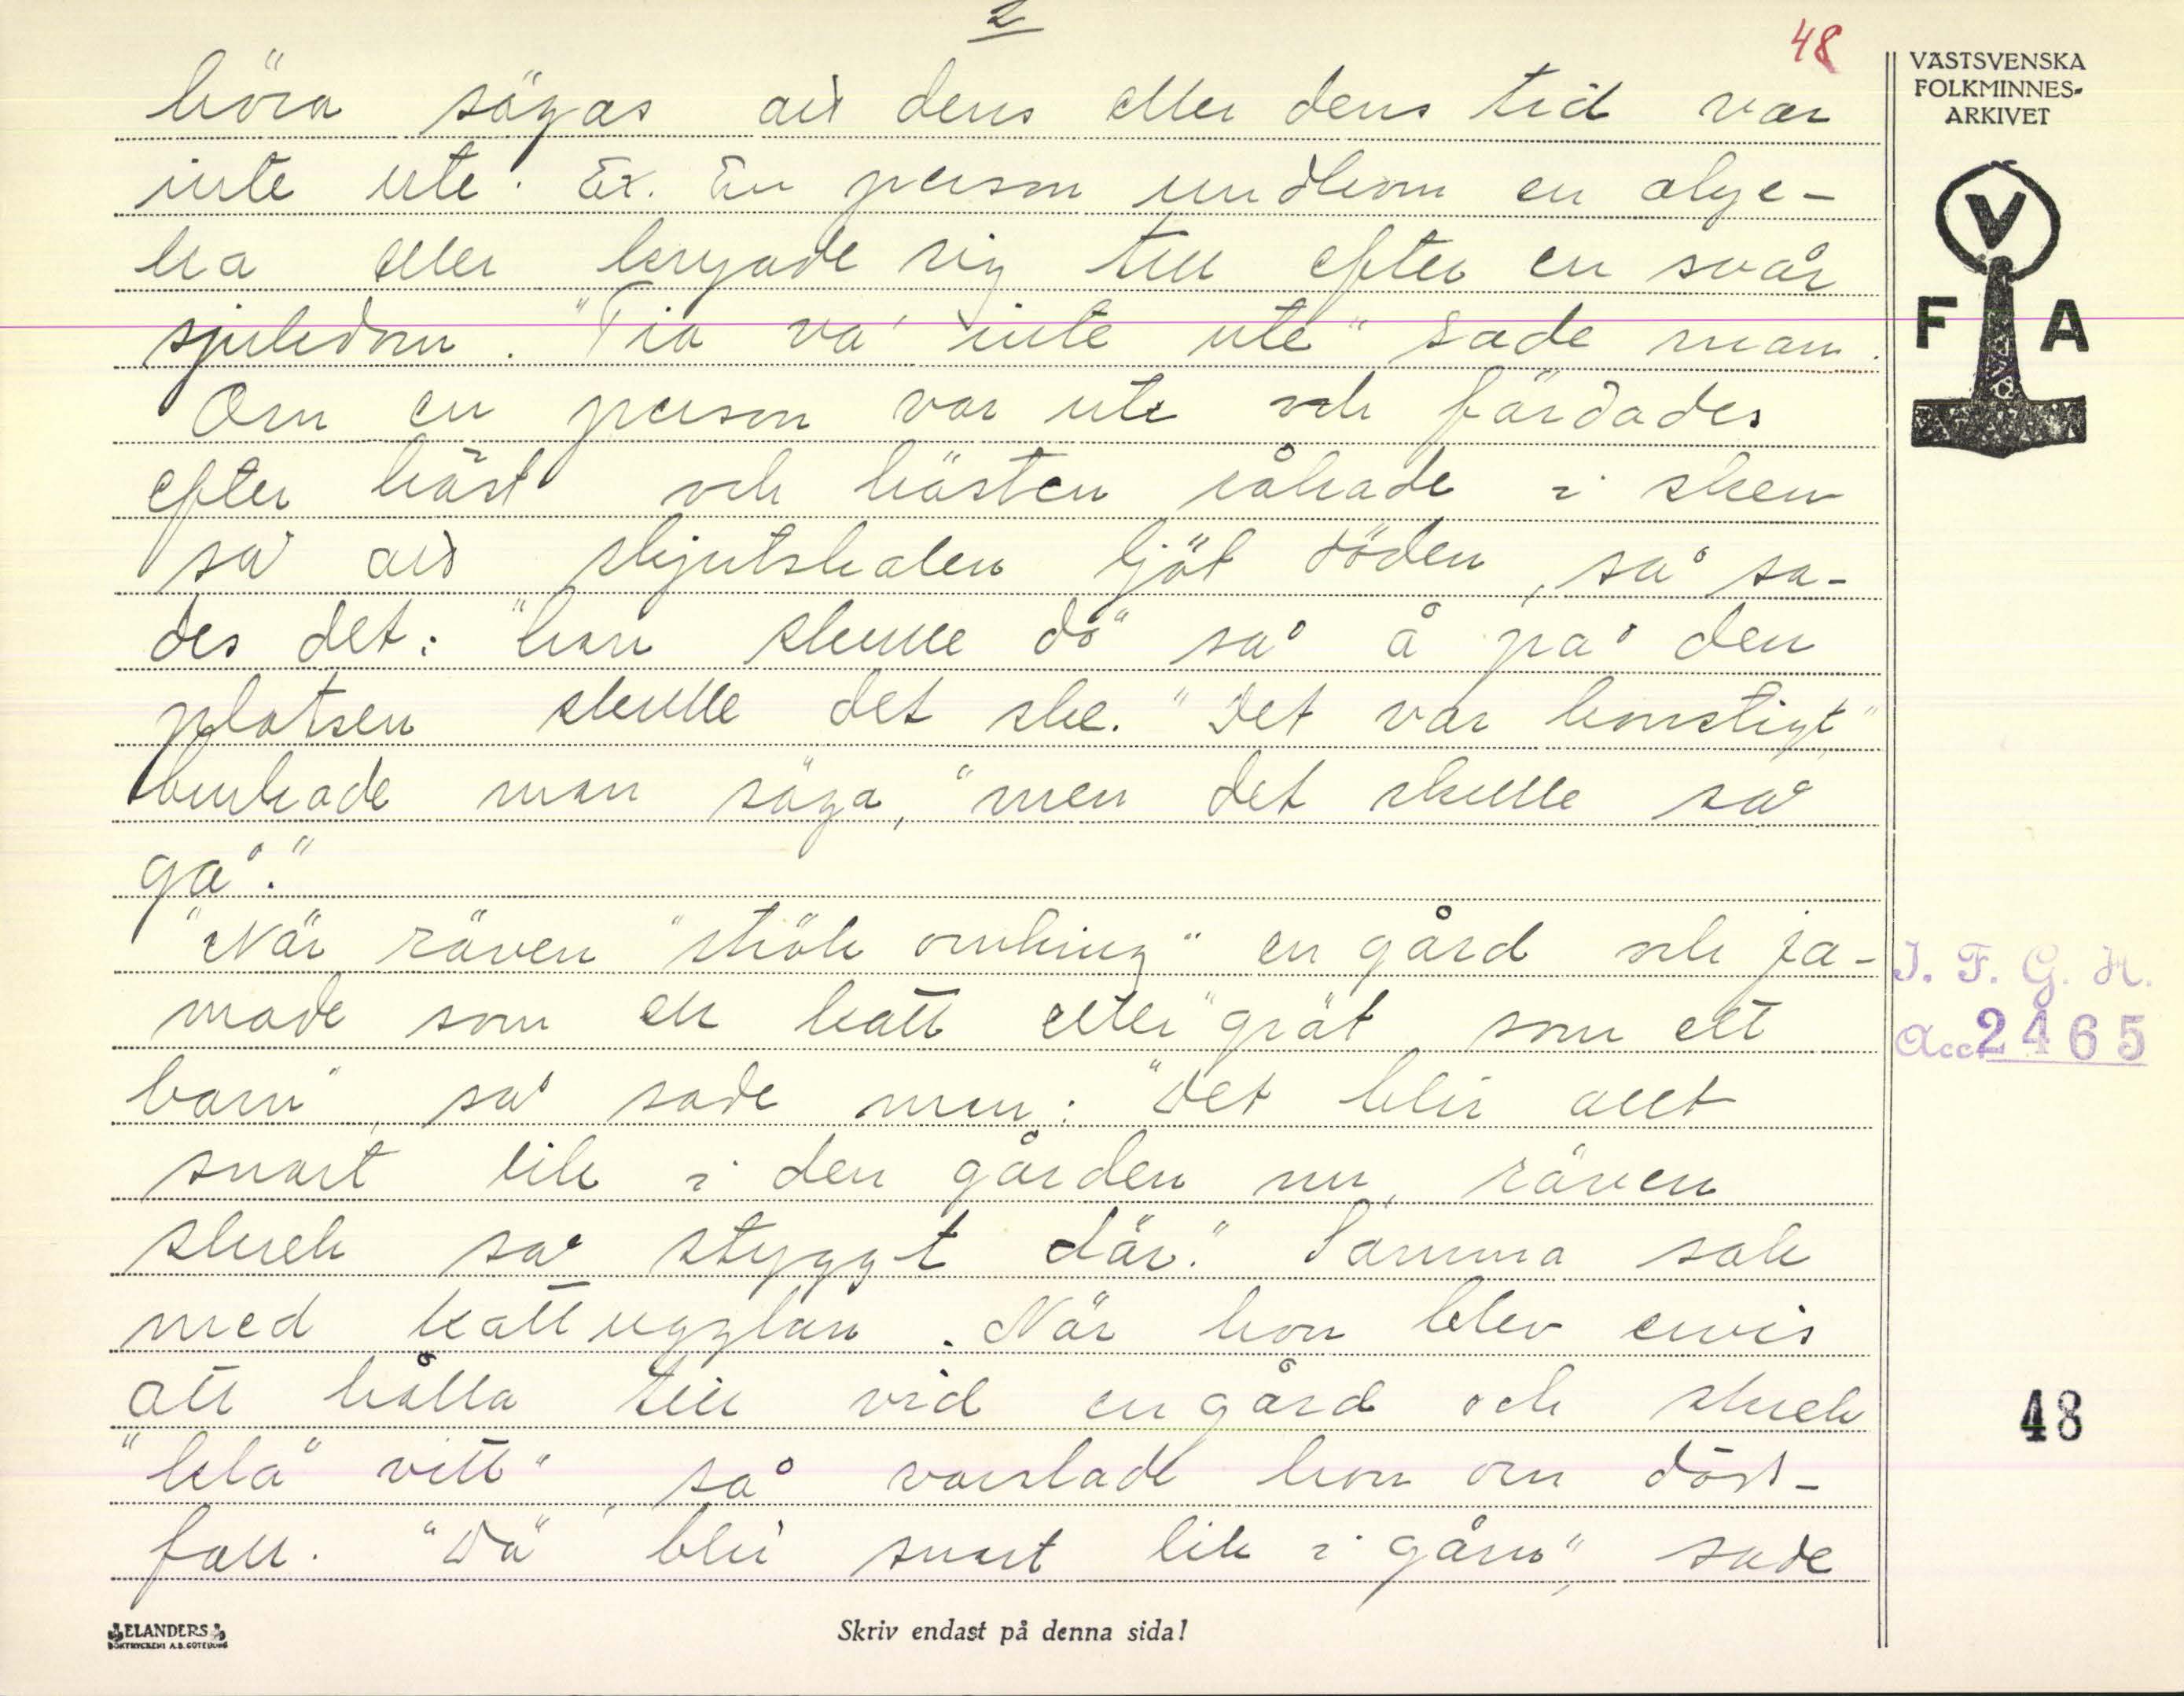 2
48
höra sägas att dens eller dens tid var
inte ute. Ex. En person undkom en olyc-
ka eller kryade sig till efter en svår
sjukdom. "Tia va' inte ute" sade man.
Om en person var ute och färdades
efter häst och hästen råkade i sken
så att skjutskalen ljöt döden, så sa-
des det: "han skulle dö" så å på den
platsen skulle det ske. "Det var konstigt"
brukade man säga, "men det skulle så
gå."
"När räven "strök omkring" en gård och ja-
made som en katt eller "grät som ett
barn", så sade man: "Det blir allt
snart lik i den gården nu, räven
skrek så styggt där." Samma sak
med kattugglan. När hon blev envis
att hålla till vid en gård och skrek
"klä vitt", så varslade hon om döds-
fall. "Dä blir snart lik i gårn", sade
VÄSTSVENSKA
FOLKMINNES-
ARKIVET
V
F A
I. F. G. H.
Acc. 2465
48
ELANDERS
BOKTRYCKERI A.B. GÖTEBORG
Skriv endast på denna sida!